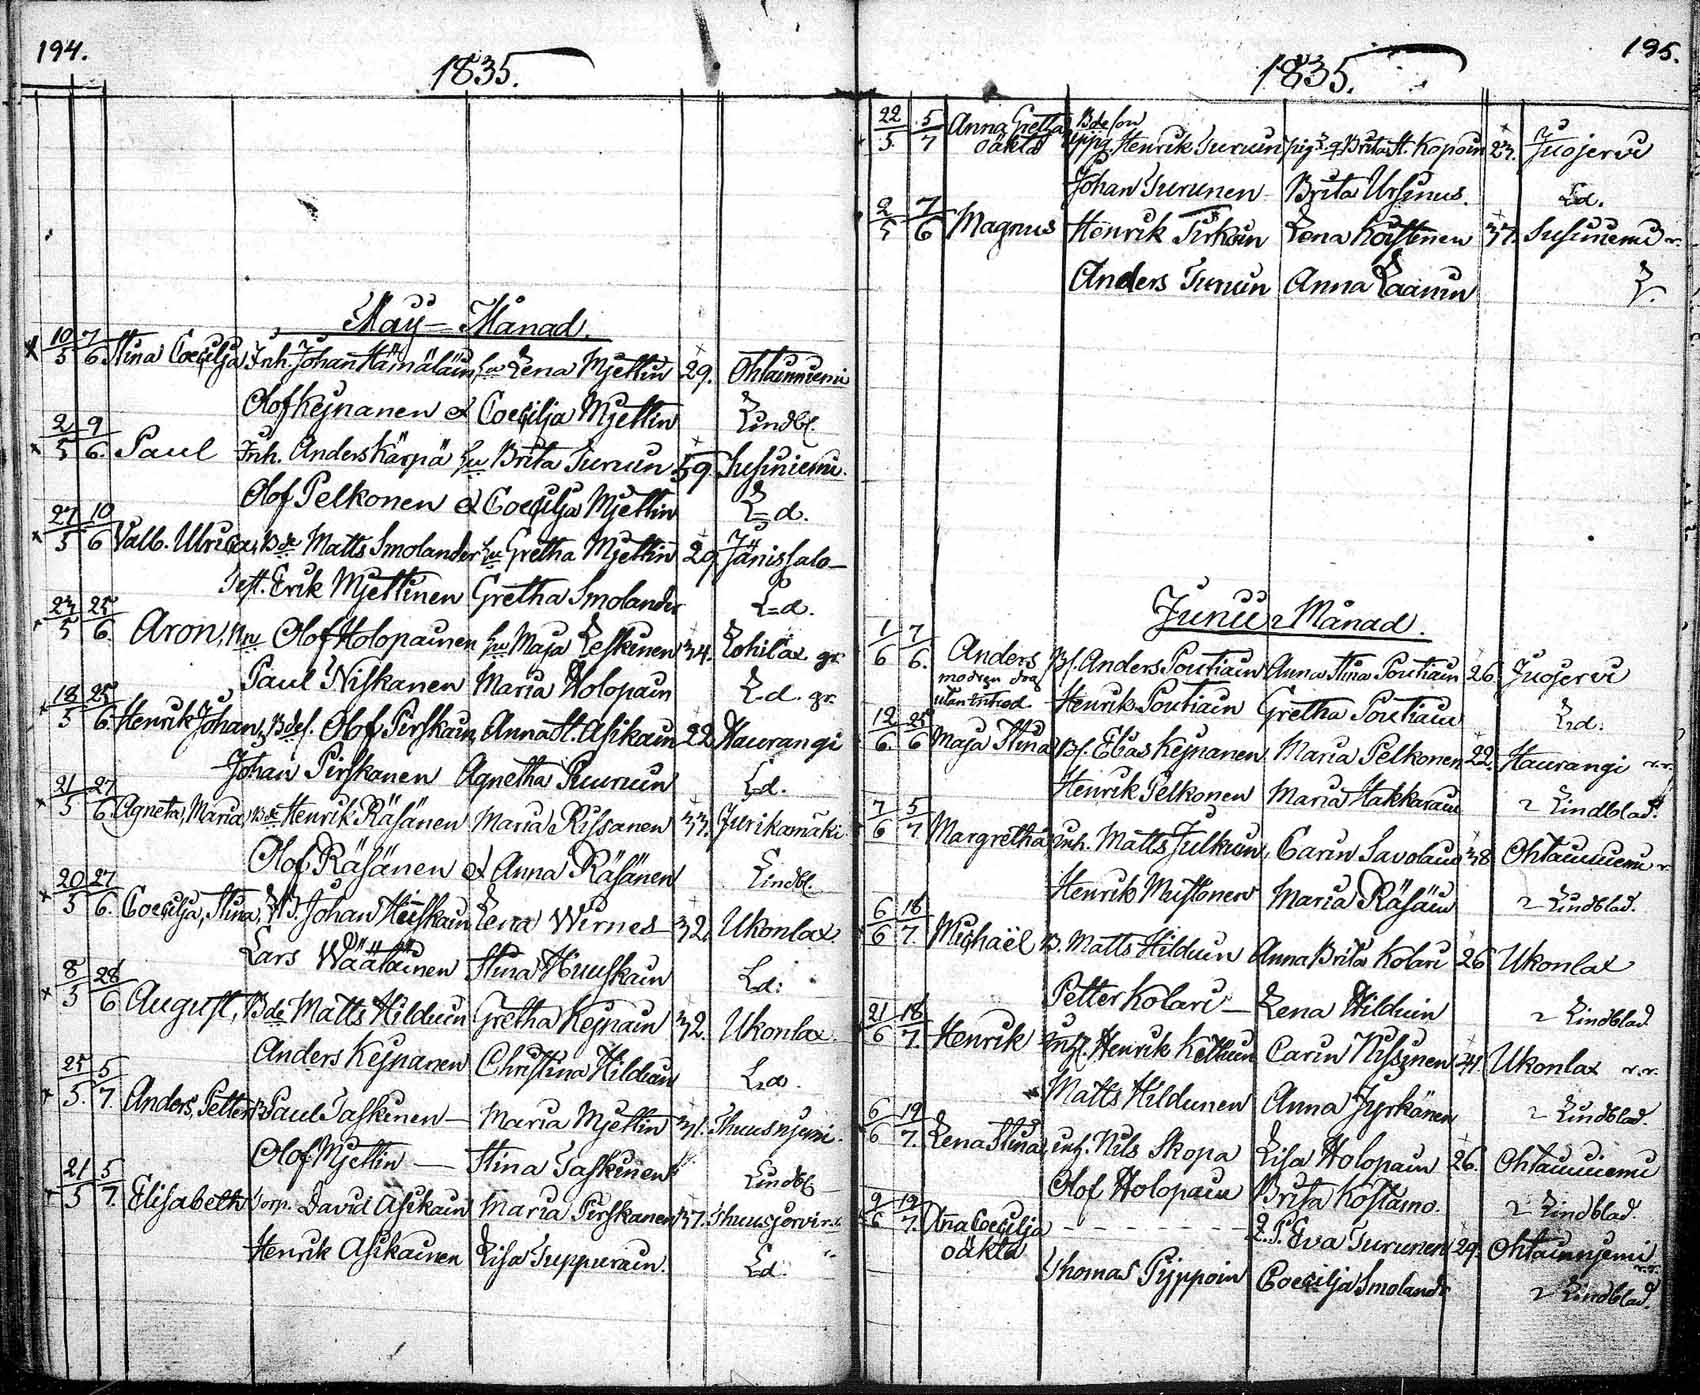 194.
1835.
May - Månad.
10/5 7/6 Stina Coecilja Inh. Johan Hämäläin, hu Lena Mjettin 29. Ohtaanniemi
Olof Kejnanen & Coecilja Mjettin Lindbl.
2/5 9/6. Paul Inh. Anders Kärpä hu Brita Turuin 39. Susiniemi.
Olof Pelkonen & Coecilja Mjettin L=d.
27/5 10/6 Valb. Ulrica, Bde Matts Smolander hu Gretha Mjettin 29. Jänissalo
Erik Mjettinen Gretha Smolander L=d.
23/5 25/6. Aron, Olof Holopainen hu Maja Leskinen 34. Lohilax gr.
Paul Niskanen Maria Holopain L.d. gr.
18/5 25/6. Henrik Johan, Bdes. Olof Pirskain, Anna St. Asikain 22. Haurangi
Johan Pirskanen Agnetha Puuruin L.d.
21/5 27/6. Agneta, Maria, Bde Henrik Räsänen Maria Rissanen 33. Jurikamäki
Olof Räsänen & Anna Räsänen Lindbl.
20/5 27/6. Coecilja, Stina, Johan Heiskain Lena Wirnes 32. Ukonlax.
Lars Wäätäinen Stina Huuskain L.d:
8/5 28/6 August, Bde Matts Hilduin Gretha Kejnain 32. Ukonlax.
Anders Kejnanen Christina Hilduin L.d.
25/5. 5/7. Anders, Petter B Paul Taskinen - Maria Mjettin 31. Thuusnjemi.
Olof Mjettin - Stina Taskinen Lindbl
21/5 5/7. Elisabeth Corp. David Asikain Maria Pirskanen 37. Thuusjervi
Henrik Asikainen Lisa Tuppurain. L.d.
195.
1835.
22/5. 5/7 Anna Gretha Bde son Henrik Turuin pig. Brita St. Kopoin 23. Juojervi
oäkta
Johan Turunen Brita Ursinus. L.d.
2/5 7/6 Magnus Henrik Tirkoin Lena Koistinen 37. Susiniemi
Anders Turuin Anna Laanin L.
Junii Månad.
1/6 7/6. Anders Bs. Anders Poutiain Anna Stina Poutiain 26. Juojervi
modren
Henrik Poutiain Gretha Poutiain L.d.
12/6. 25/6 Maja Stina Bs. Elias Kejnanen Maria Pelkonen 22. Haurangi
Henrik Pelkonen Maria Hakkarain Lindblad.
7/6 5/7. Margretha inh. Matts Julkuin, Carin Savolain 38 Ohtaanniemi
Henrik Mustonen Maria Räsäin Lindblad.
6/6 18/7. Michaël B. Matts Hilduin Anna Brita Kolari 26 Ukonlax
Petter Kolari - Lena Hilduin Lindblad
21/6 18/7. Henrik inh. Henrik Carin Nissinen 41. Ukonlax
Matts Hildunen Anna Jyrkänen Lindblad.
6/6 19/7. Lena Stina, inh. Nils Skopa Lisa Holopain 26. Ohtaanniemi
Olof Holopain Brita Kostamo. Lindblad.
9/6 19/7. Anna Coecilja - - - - - - Eva Turunen 29. Ohtaannjemi
oäkta
Thomas Pyppoin Coecilja Smoland Lindblad.